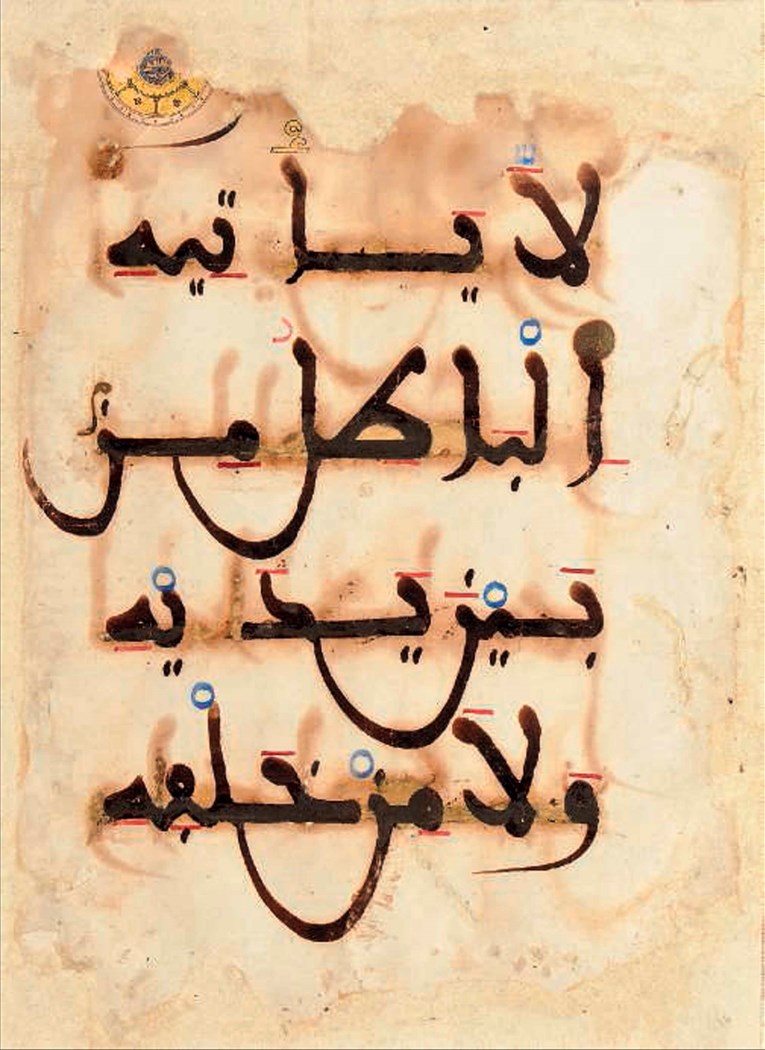 لَّا يَاتِيهِ
اِلْبَاطِلُ مِنۢ
بَيْنِ يَدَيْهِ
وَلَا مِنْ خَلْفِهِ